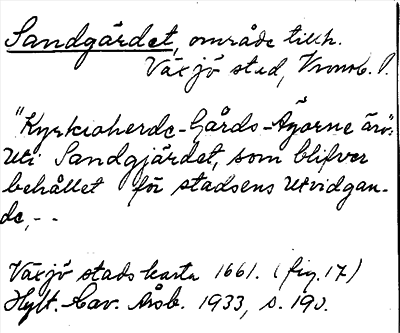 Sandgärdet, område tillh.
Växjö stad, Kronob. l.
"Kyrkioherde-Gårds-Ägorne äro:
Uti Sandgjärdet, som blifver
behållet för stadsens Utvidgan-
de, - -
Växjö stads karta 1661. (fig. 17)
Hylt. Cav. Årsb. 1933, s. 190.